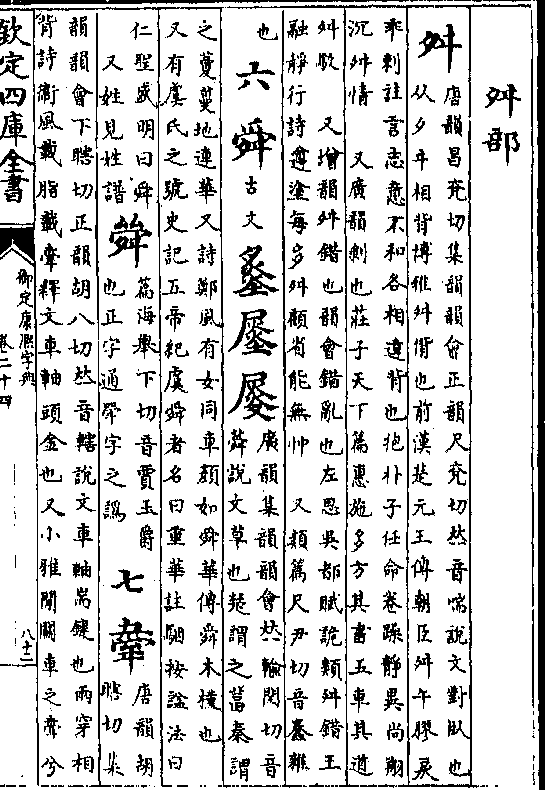 舛部
舛 唐韻昌兖切集韻韻會正韻尺兖切𠀤音喘說文對臥也
从夕㐄相背博雅舛偝也前漢楚元王傳朝臣舛午膠戾
乖剌註言志意不和各相違背也抱朴子任命卷躁靜異尚翔
沉舛情 又廣韻剝也莊子天下篇惠施多方其書五車其道
舛駮 又增韻舛錯也韻會錯亂也左思吳都賦詭類舛錯王
融靜行詩遵塗每多舛顧省能無忡 又類篇尺尹切音蠢雜
也 六 舜 古文
廣韻集韻韻會𠀤輸閏切音
蕣說文草也楚謂之葍秦謂
之藑蔓地連華又詩鄭風有女同車顏如舜華傳舜木槿也
又有虞氏之號史記五帝紀虞舜者名曰重華註駰按諡法曰
仁聖盛明曰舜
又姓見姓譜
篇海舉下切音賈玉爵
也正字通斝字之譌
七 舝 唐韻胡
瞎切集
韻韻會下瞎切正韻胡八切𠀤音轄說文車軸耑鍵也兩穿相
背詩衛風載脂載舝釋文車軸頭金也又小雅間關車之舝兮
欽定四庫全書
御定康熙字典
卷二十四
八十二